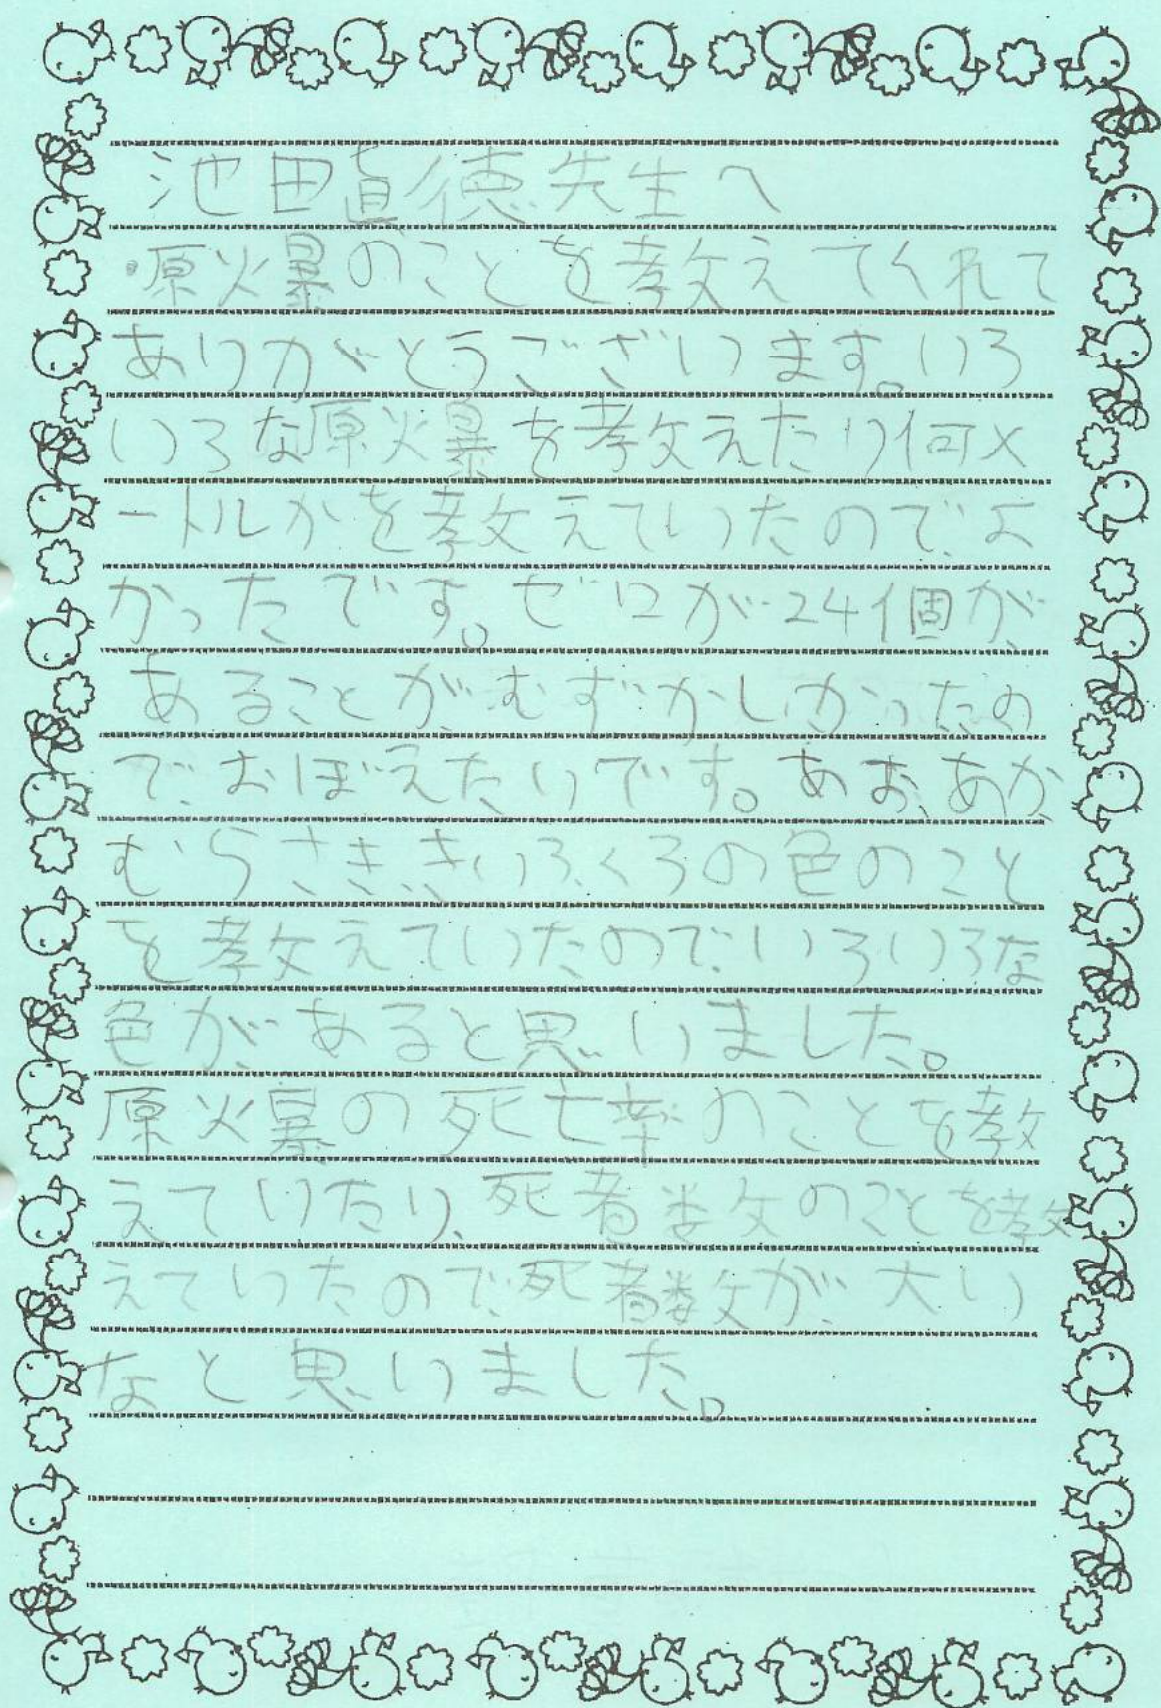 池田直徳先生へ
・原爆のことを教えてくれて
ありがとうございます。いろ
いろな原爆を教えたり何メ
ートルかを教えていたのでよ
かったです。ゼロが24個が
あることがむずかしかったの
で、おぼえたいです。あお、あか、
むらさき、きいろ、くろの色のこと
を教えていたので、いろいろな
色があると思いました。
原爆の死亡率のことを教
えていたり、死者数のことを教
えていたので、死者数が、大い
なと思いました。